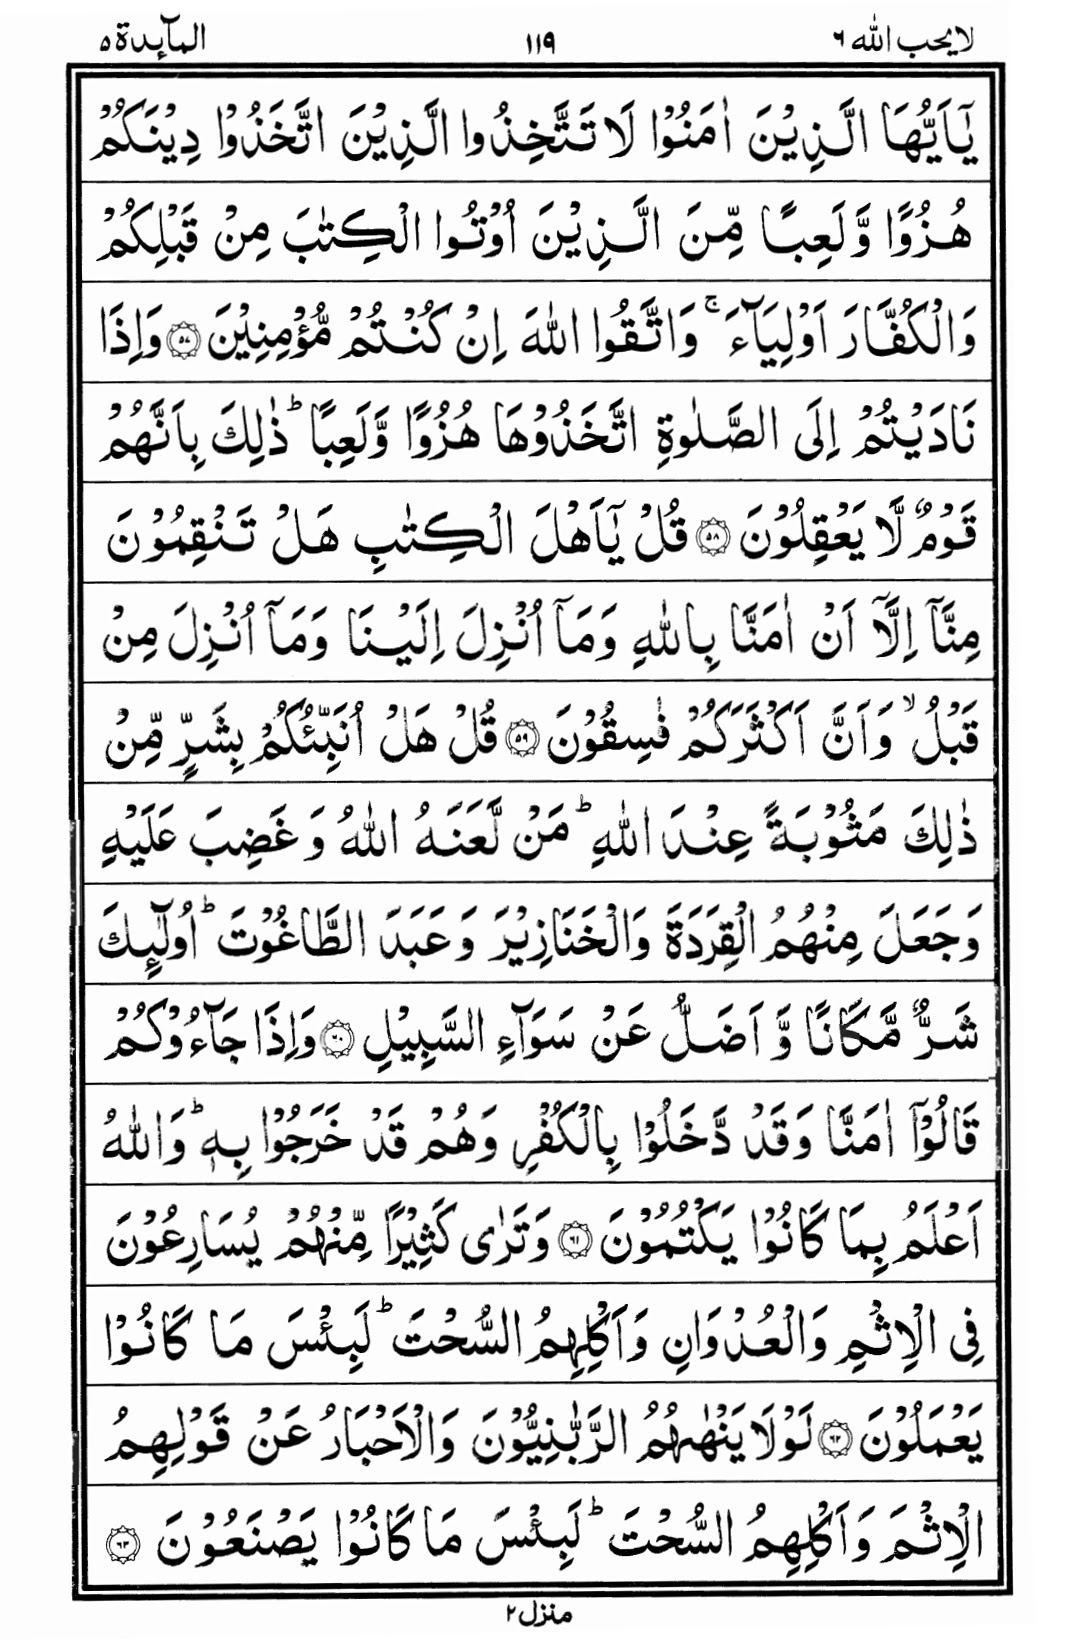 لا یحب اللہ ۶ ۱۱۹ المآىِٕدة ۵
یٰۤاَیُّهَا الَّذِیْنَ اٰمَنُوْا لَا تَتَّخِذُوا الَّذِیْنَ اتَّخَذُوْا دِیْنَكُمْ
هُزُوًا وَّلَعِبًا مِّنَ الَّذِیْنَ اُوْتُوا الْكِتٰبَ مِنْ قَبْلِكُمْ
وَالْكُفَّارَ اَوْلِیَآءَ ۚ وَاتَّقُوا اللّٰهَ اِنْ كُنْتُمْ مُّؤْمِنِیْنَ ۝۵۷ وَاِذَا
نَادَیْتُمْ اِلَی الصَّلٰوةِ اتَّخَذُوْهَا هُزُوًا وَّلَعِبًا ؕ ذٰلِكَ بِاَنَّهُمْ
قَوْمٌ لَّا یَعْقِلُوْنَ ۝۵۸ قُلْ یٰۤاَهْلَ الْكِتٰبِ هَلْ تَنْقِمُوْنَ
مِنَّاۤ اِلَّاۤ اَنْ اٰمَنَّا بِاللّٰهِ وَمَاۤ اُنْزِلَ اِلَیْنَا وَمَاۤ اُنْزِلَ مِنْ
قَبْلُ ۙ وَاَنَّ اَكْثَرَكُمْ فٰسِقُوْنَ ۝۵۹ قُلْ هَلْ اُنَبِّئُكُمْ بِشَرٍّ مِّنْ
ذٰلِكَ مَثُوْبَةً عِنْدَ اللّٰهِ ؕ مَنْ لَّعَنَهُ اللّٰهُ وَغَضِبَ عَلَیْهِ
وَجَعَلَ مِنْهُمُ الْقِرَدَةَ وَالْخَنَازِیْرَ وَعَبَدَ الطَّاغُوْتَ ؕ اُولٰٓىِٕكَ
شَرٌّ مَّكَانًا وَّاَضَلُّ عَنْ سَوَآءِ السَّبِیْلِ ۝۶۰ وَاِذَا جَآءُوْكُمْ
قَالُوْۤا اٰمَنَّا وَقَدْ دَّخَلُوْا بِالْكُفْرِ وَهُمْ قَدْ خَرَجُوْا بِهٖ ؕ وَاللّٰهُ
اَعْلَمُ بِمَا كَانُوْا یَكْتُمُوْنَ ۝۶۱ وَتَرٰی كَثِیْرًا مِّنْهُمْ یُسَارِعُوْنَ
فِی الْاِثْمِ وَالْعُدْوَانِ وَاَكْلِهِمُ السُّحْتَ ؕ لَبِئْسَ مَا كَانُوْا
یَعْمَلُوْنَ ۝۶۲ لَوْلَا یَنْهٰىهُمُ الرَّبّٰنِیُّوْنَ وَالْاَحْبَارُ عَنْ قَوْلِهِمُ
الْاِثْمَ وَاَكْلِهِمُ السُّحْتَ ؕ لَبِئْسَ مَا كَانُوْا یَصْنَعُوْنَ ۝۶۳
منزل ۲